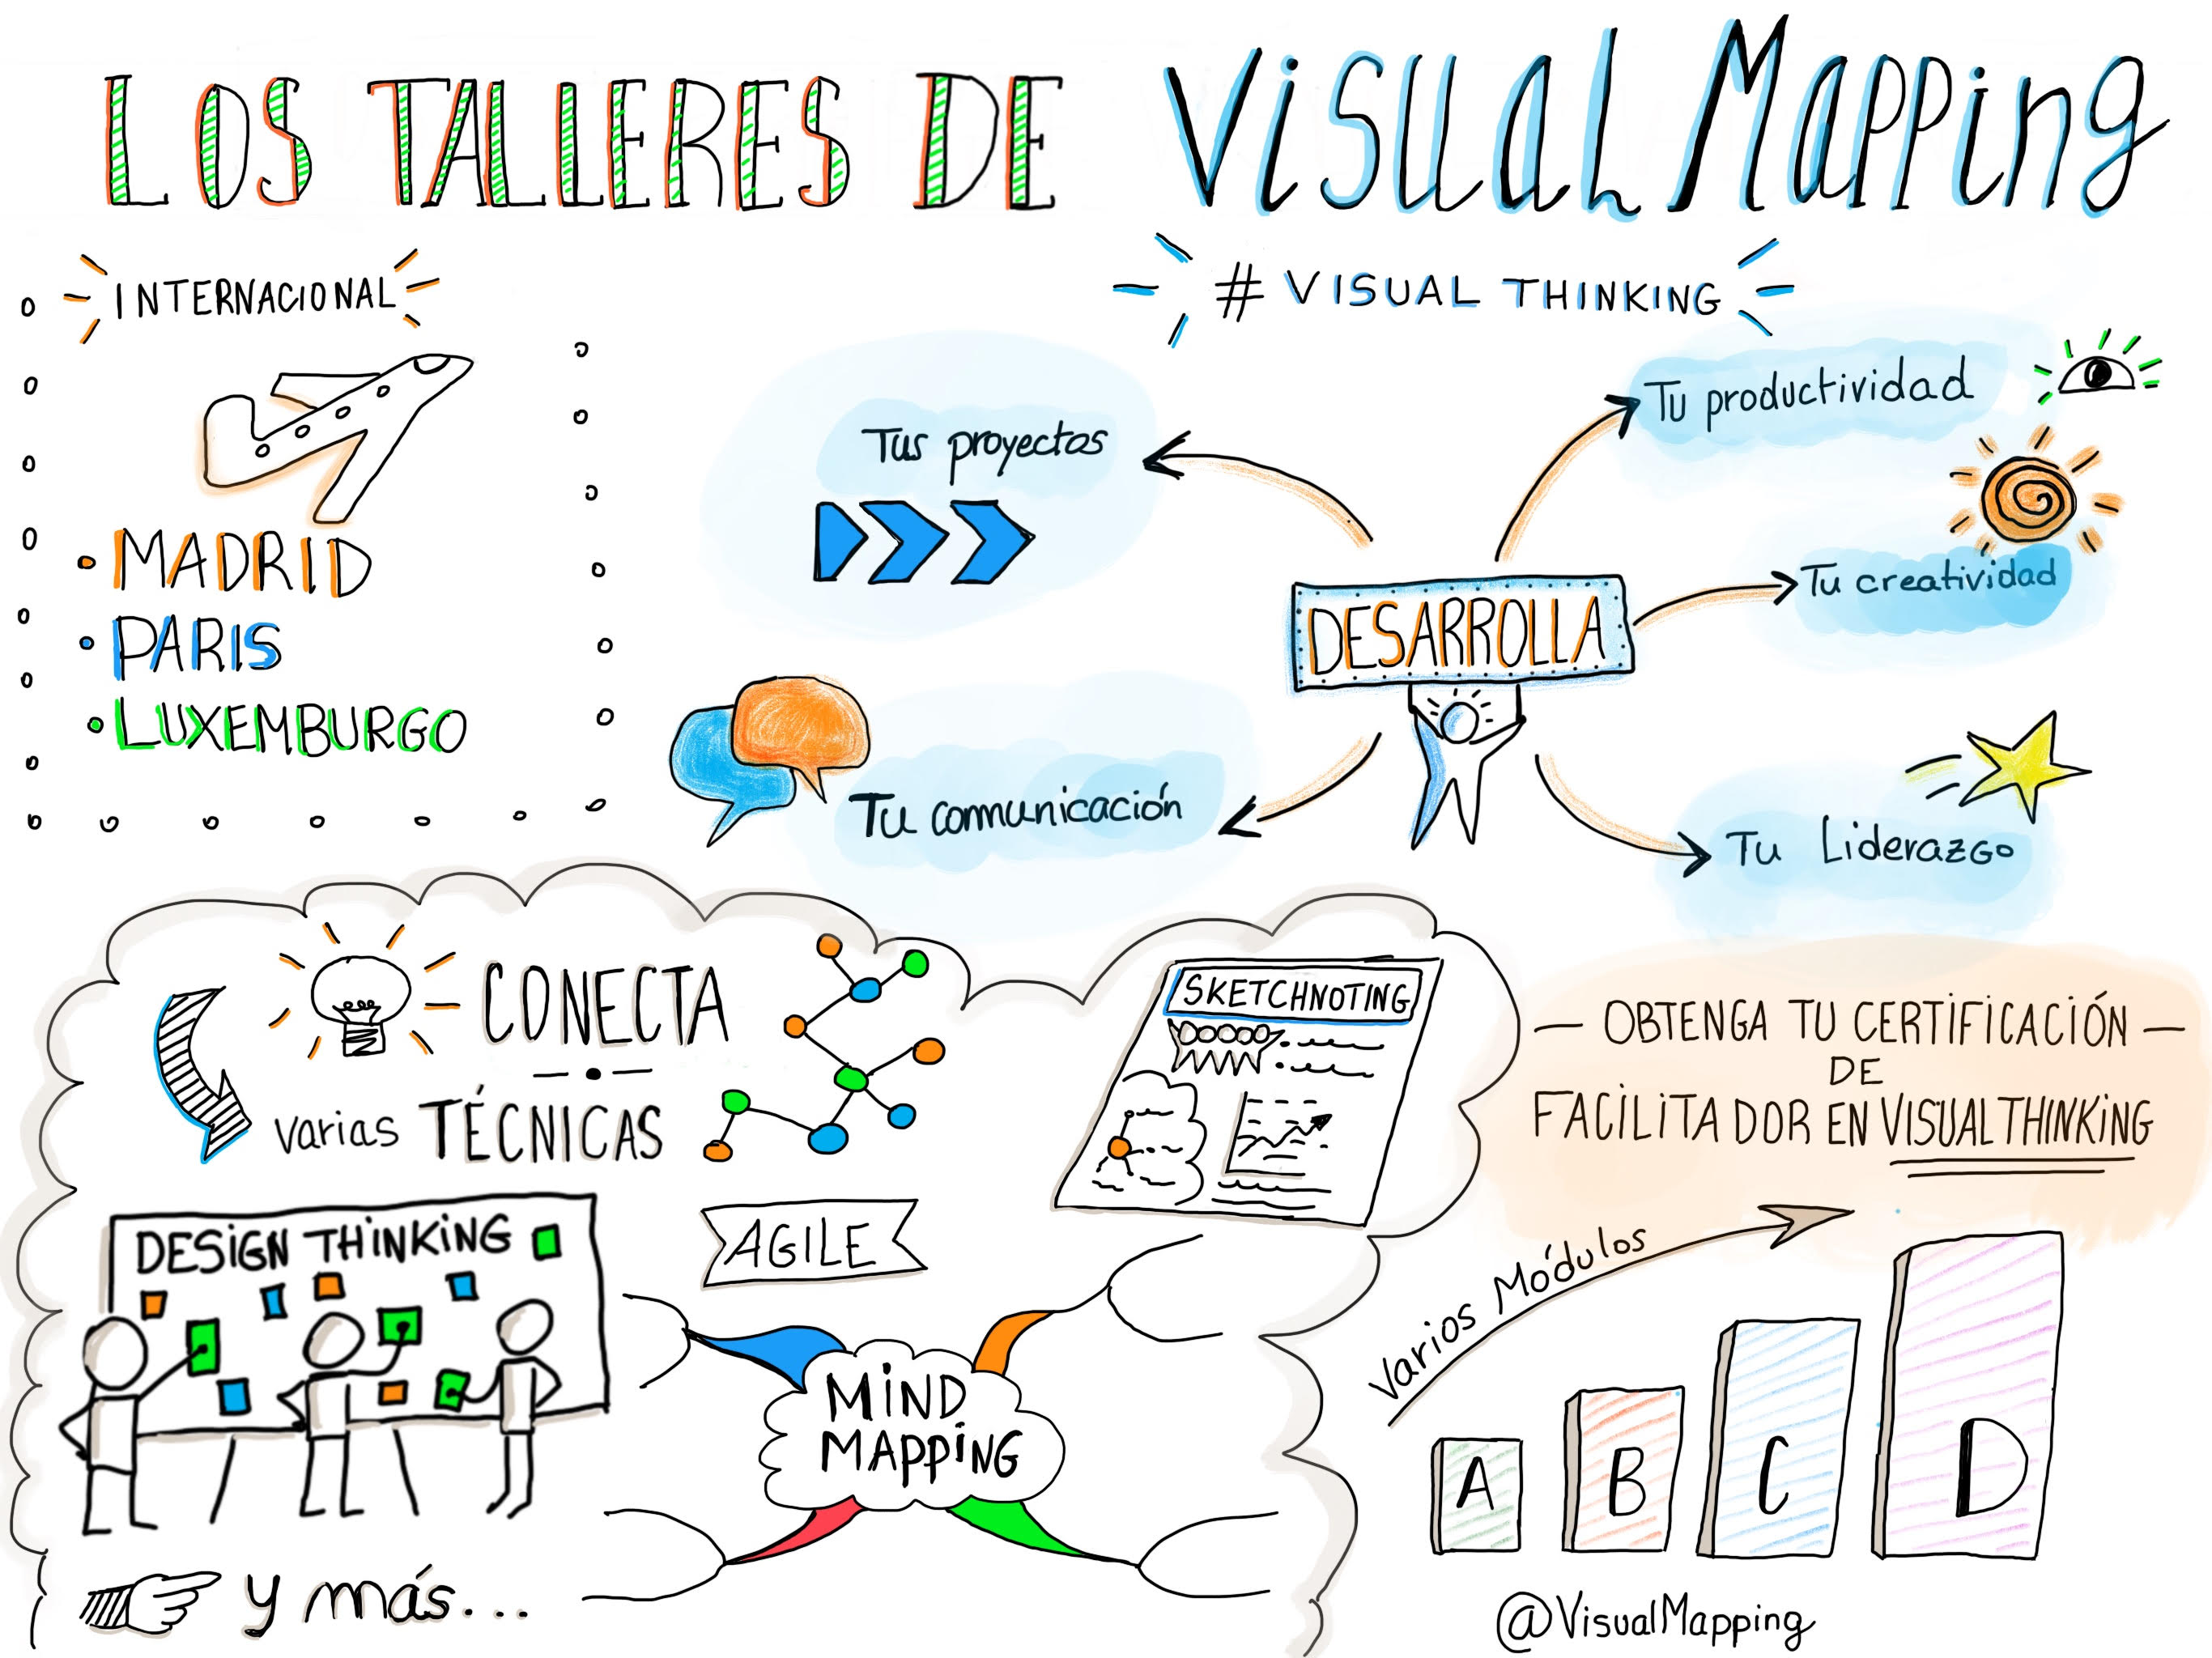 LOS TALLERES DE Visual Mapping
# VISUAL THINKING
INTERNACIONAL
• MADRID
• PARIS
• LUXEMBURGO
Tus proyectos
Tu productividad
Tu creatividad
DESARROLLA
Tu comunicación
Tu Liderazgo
CONECTA
varias TÉCNICAS
SKETCHNOTING
DESIGN THINKING
AGILE
MIND
MAPPING
y más...
— OBTENGA TU CERTIFICACIÓN —
DE
FACILITADOR EN VISUAL THINKING
Varios Módulos
A
B
C
D
@VisualMapping